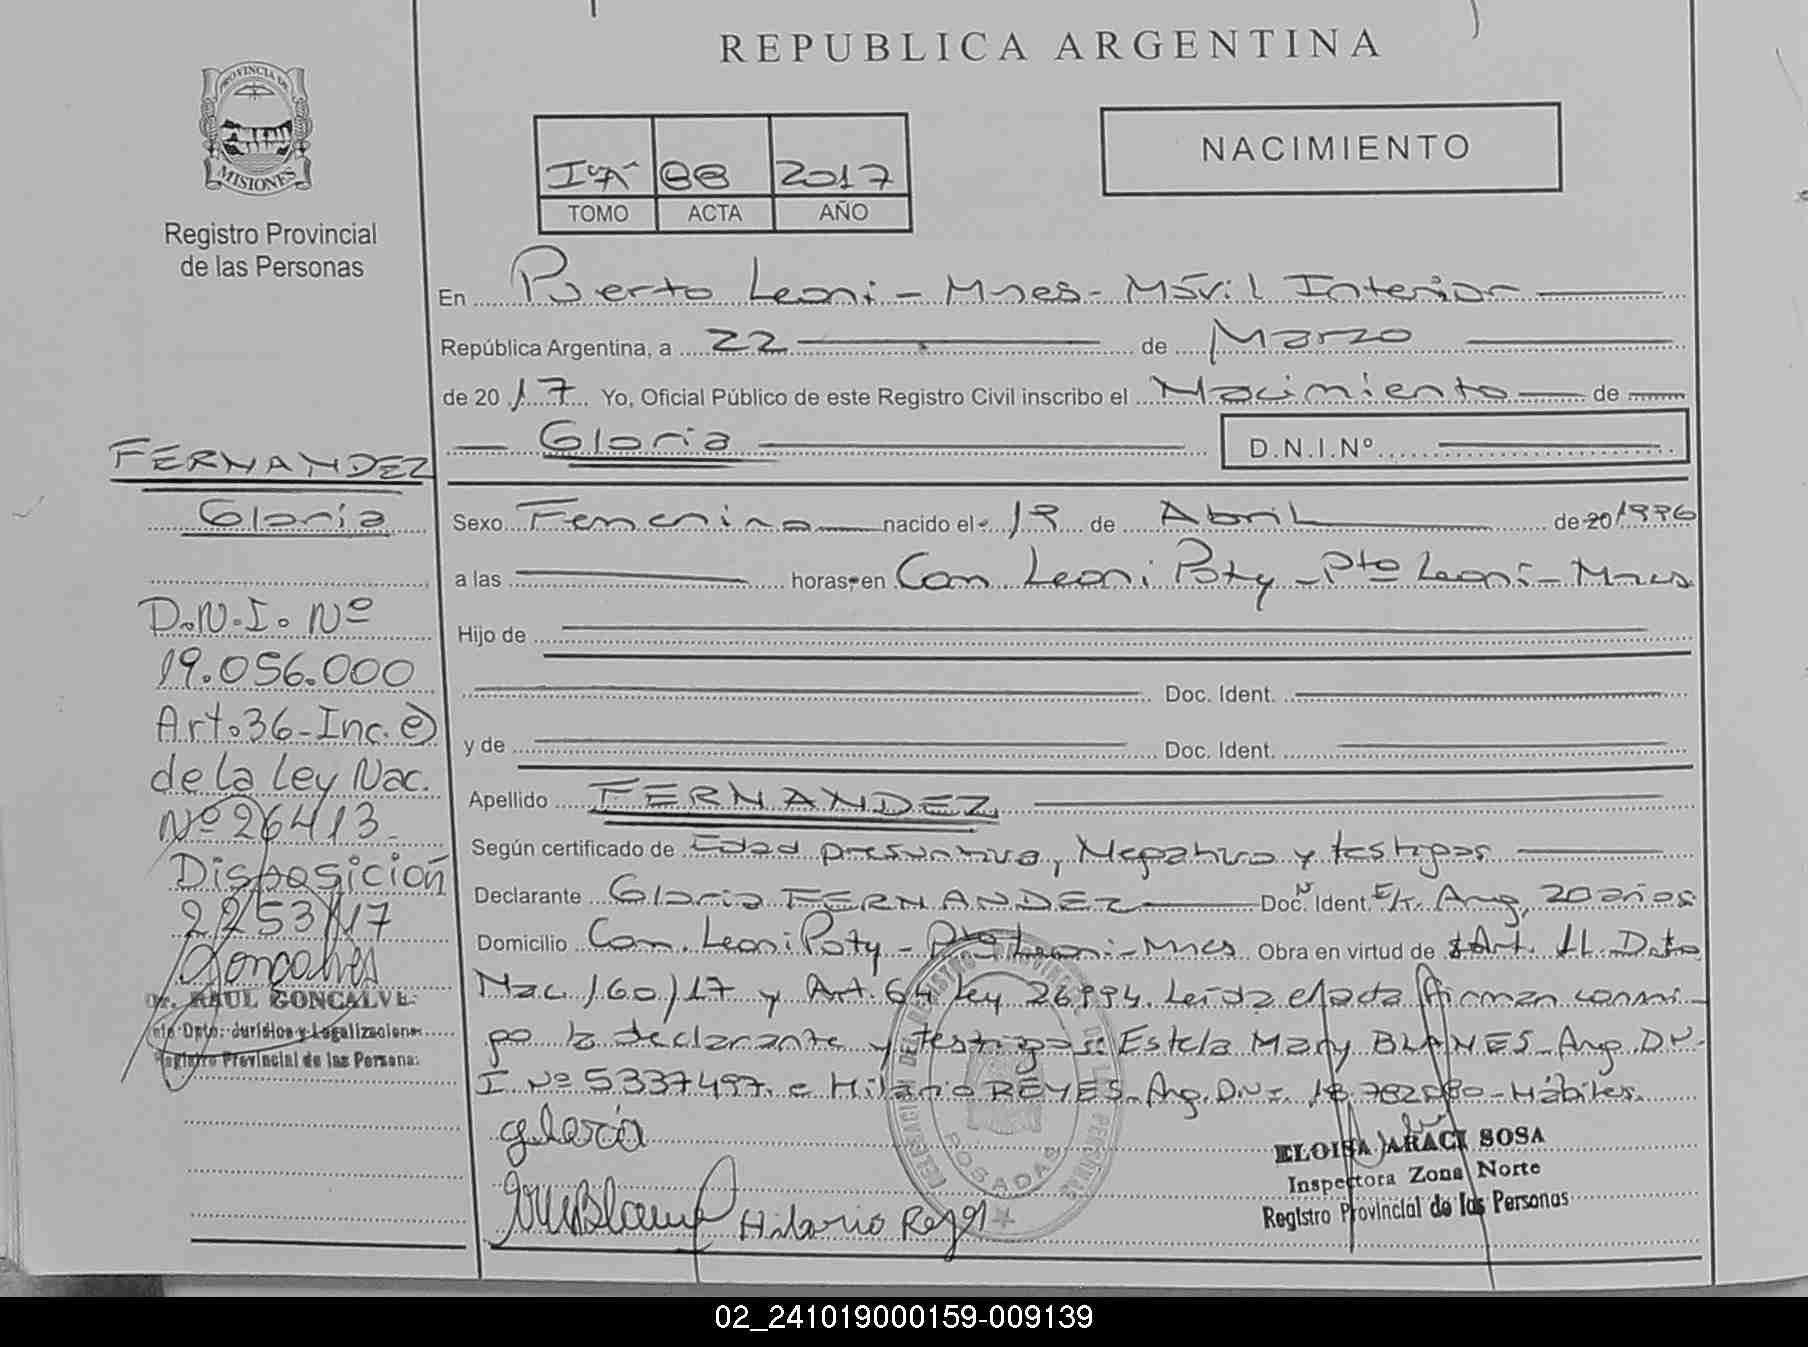 REPUBLICA ARGENTINA
PROVINCIA DE
MISIONES
Registro Provincial
de las Personas
NACIMIENTO
IºA 88 2017
TOMO ACTA AÑO
En Puerto Leoni - Mnes - Móvil Interior
República Argentina, a 22 de Marzo
de 2017 Yo, Oficial Público de este Registro Civil inscribo el Nacimiento de
Gloria D.N.I.Nº
Sexo Femenino nacido el 19 de Abril de 20 1996
a las horas, en Com Leoni Poty - Pto Leoni - Mnes
Hijo de
Doc. Ident.
y de Doc. Ident.
Apellido FERNANDEZ
Según certificado de Edad presuntiva, Negativo y testigos
Declarante Gloria FERNANDEZ Doc. Ident. E/t. Arg, 20 años
Domicilio Com. Leoni Poty - Pto Leoni - Mnes Obra en virtud de Art. 11. Dto
Nac. 160/17 y Art. 64 Ley 26994. Leída el acta firman conmi-
go la declarante y testigos: Estela Mary BLANES - Arg. D.N.
I. Nº 5337497. e Hilario REYES - Arg. D.N.I. - Hábiles.
gloria
Hilario Reyes
ELOISA ARACI SOSA
Inspectora Zona Norte
Registro Provincial de las Personas
POSADAS
FERNANDEZ
Gloria
D.N.I. Nº
19.056.000
Art.36-Inc. e)
de la Ley Nac.
Nº 26413
Disposición
2253/17
Goncalves
Dr. RAUL GONCALVE
Dpto. Jurídico y Legalizaciones
Registro Provincial de las Personas
02_241019000159-009139